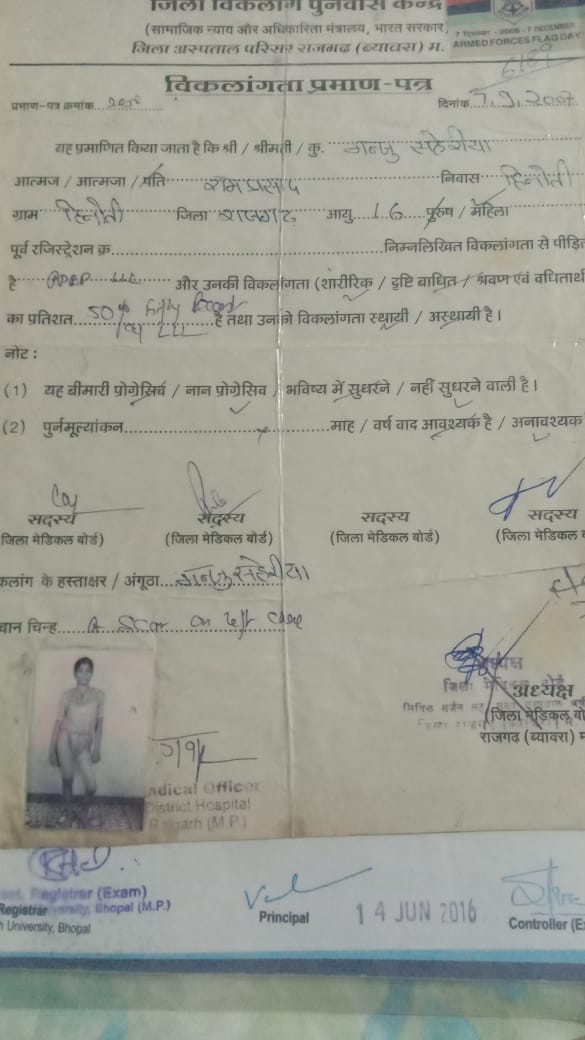 जिला विकलांग पुनर्वास केन्द्र
(सामाजिक न्याय और अधिकारिता मंत्रालय, भारत सरकार)
7 दिसम्बर - 2006 - 7 DECEMBER
ARMED FORCES FLAG DAY
जिला अस्पताल परिसर राजगढ़ (ब्यावरा) म.
विकलांगता प्रमाण-पत्र
प्रमाण-पत्र क्रमांक
दिनांक 7.9.2007
यह प्रमाणित किया जाता है कि श्री / श्रीमती / कु. सहेरीया
आत्मज / आत्मजा / पति रामप्रसाद निवास हिनोती
ग्राम हिनोती जिला राजगढ आयु 16 पुरुष / महिला
पूर्व रजिस्ट्रेशन क्र निम्नलिखित विकलांगता से पीड़ित
है और उनकी विकलांगता (शारीरिक / दृष्टि बाधित / श्रवण एवं वधितार्थ
का प्रतिशत 50% Fifty है तथा उनको विकलांगता स्थायी / अस्थायी है।
नोट :
(1) यह बीमारी प्रोग्रेसिव / नान प्रोग्रेसिव / भविष्य में सुधरने / नहीं सुधरने वाली है।
(2) पुर्नमूल्यांकन माह / वर्ष वाद आवश्यक है / अनावश्यक
सदस्य सदस्य सदस्य सदस्य
(जिला मेडिकल बोर्ड) (जिला मेडिकल बोर्ड) (जिला मेडिकल बोर्ड) (जिला मेडिकल
कलांग के हस्ताक्षर / अंगूठा सहेरीया
चान चिन्ह A Scar on left
अध्यक्ष
अध्यक्ष
(जिला मेडिकल बो
राजगढ़ (ब्यावरा) म
adical Officer
District Hospital
Rajgarh (M.P.)
Registrar (Exam)
Registrar
Bhopal (M.P.)
h University, Bhopal
Principal
14 JUN 2016
Controller (E